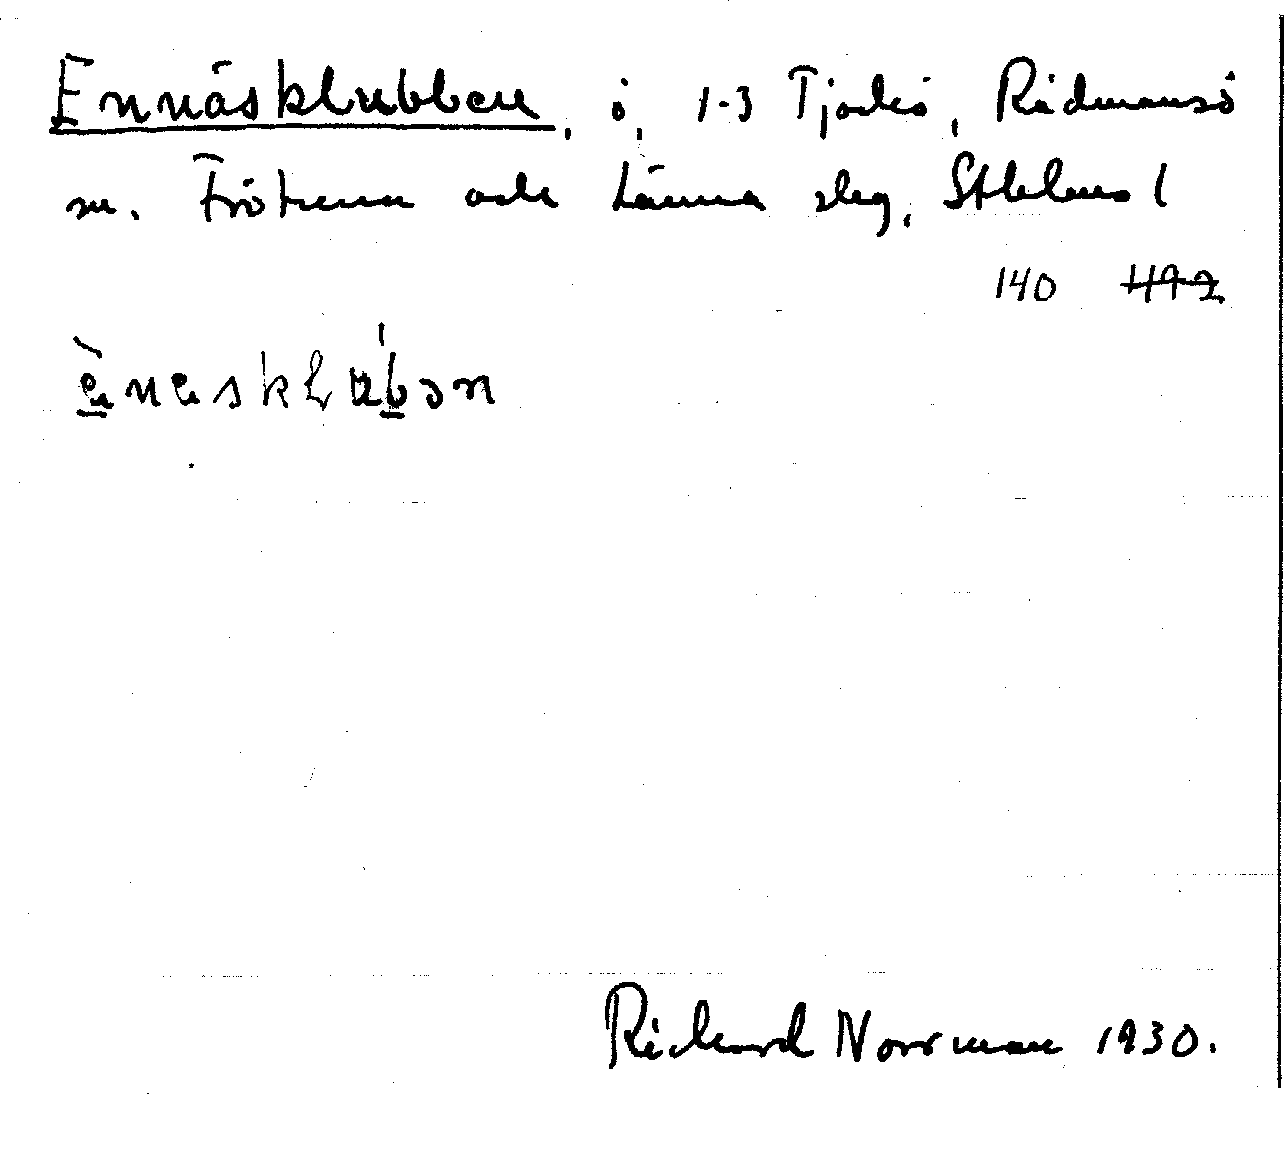 Ennäsklubben, ö, 1-3 Tjockö, Rådmansö
sn. Frötuna och Länna slg, Sthlms l
140 492
ènesklub́ən
Rickard Norrman 1930.